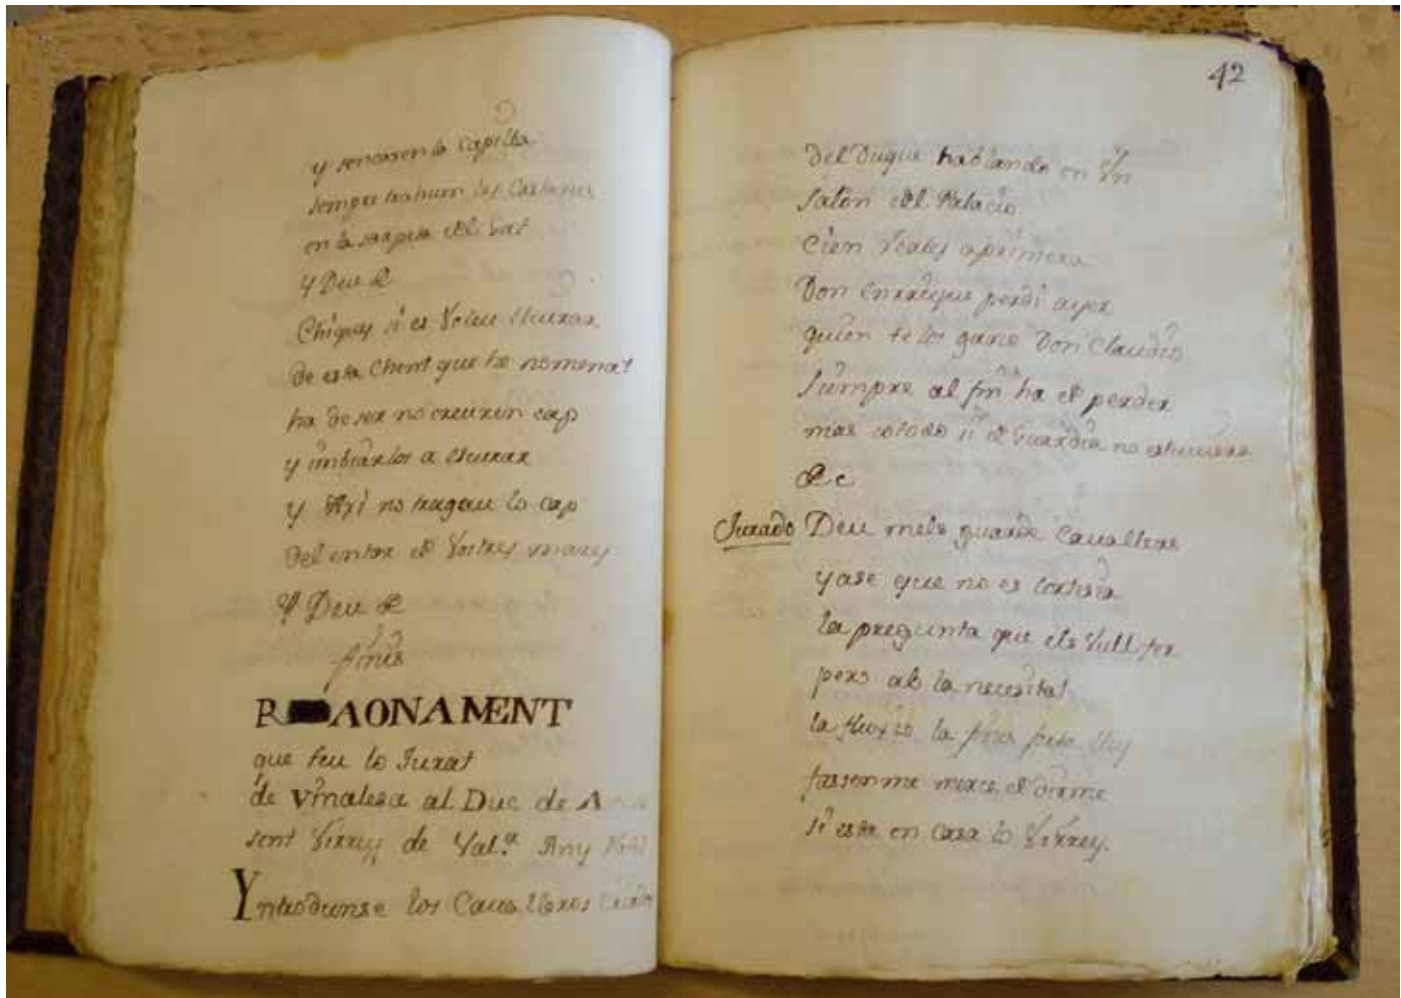 y
sempre las
en la del Gat
y Deu &
Chiques si es Voleu lliurar
de esta Chent que he nomenat
ha de ser no creuren cap
y imbiarlos a lliurar
y Axi no tragau lo cap
del entre de Vostres mares
Y Deu &
finis
R AONAMENT
que feu lo Jurat
de Vinalesa al Duc de A
sent Virrey de Val.ª Any
Yntrodunse los Cavalleros
42
Del Duque hablando en Vn
salon del Palacio
Cien reales a primera
Don Enrrique perdi ayer
quien te los gano Don Claudio
siempre al fin ha de perder
mas si de Guardia no estuviera
& c
Jurado Deu mels guarde Cavallers
yase que no es cortesia
la pregunta que els Vull fer
pero ab la necesitat
la
fassenme merce de dirme
si esta en casa lo Virrey.